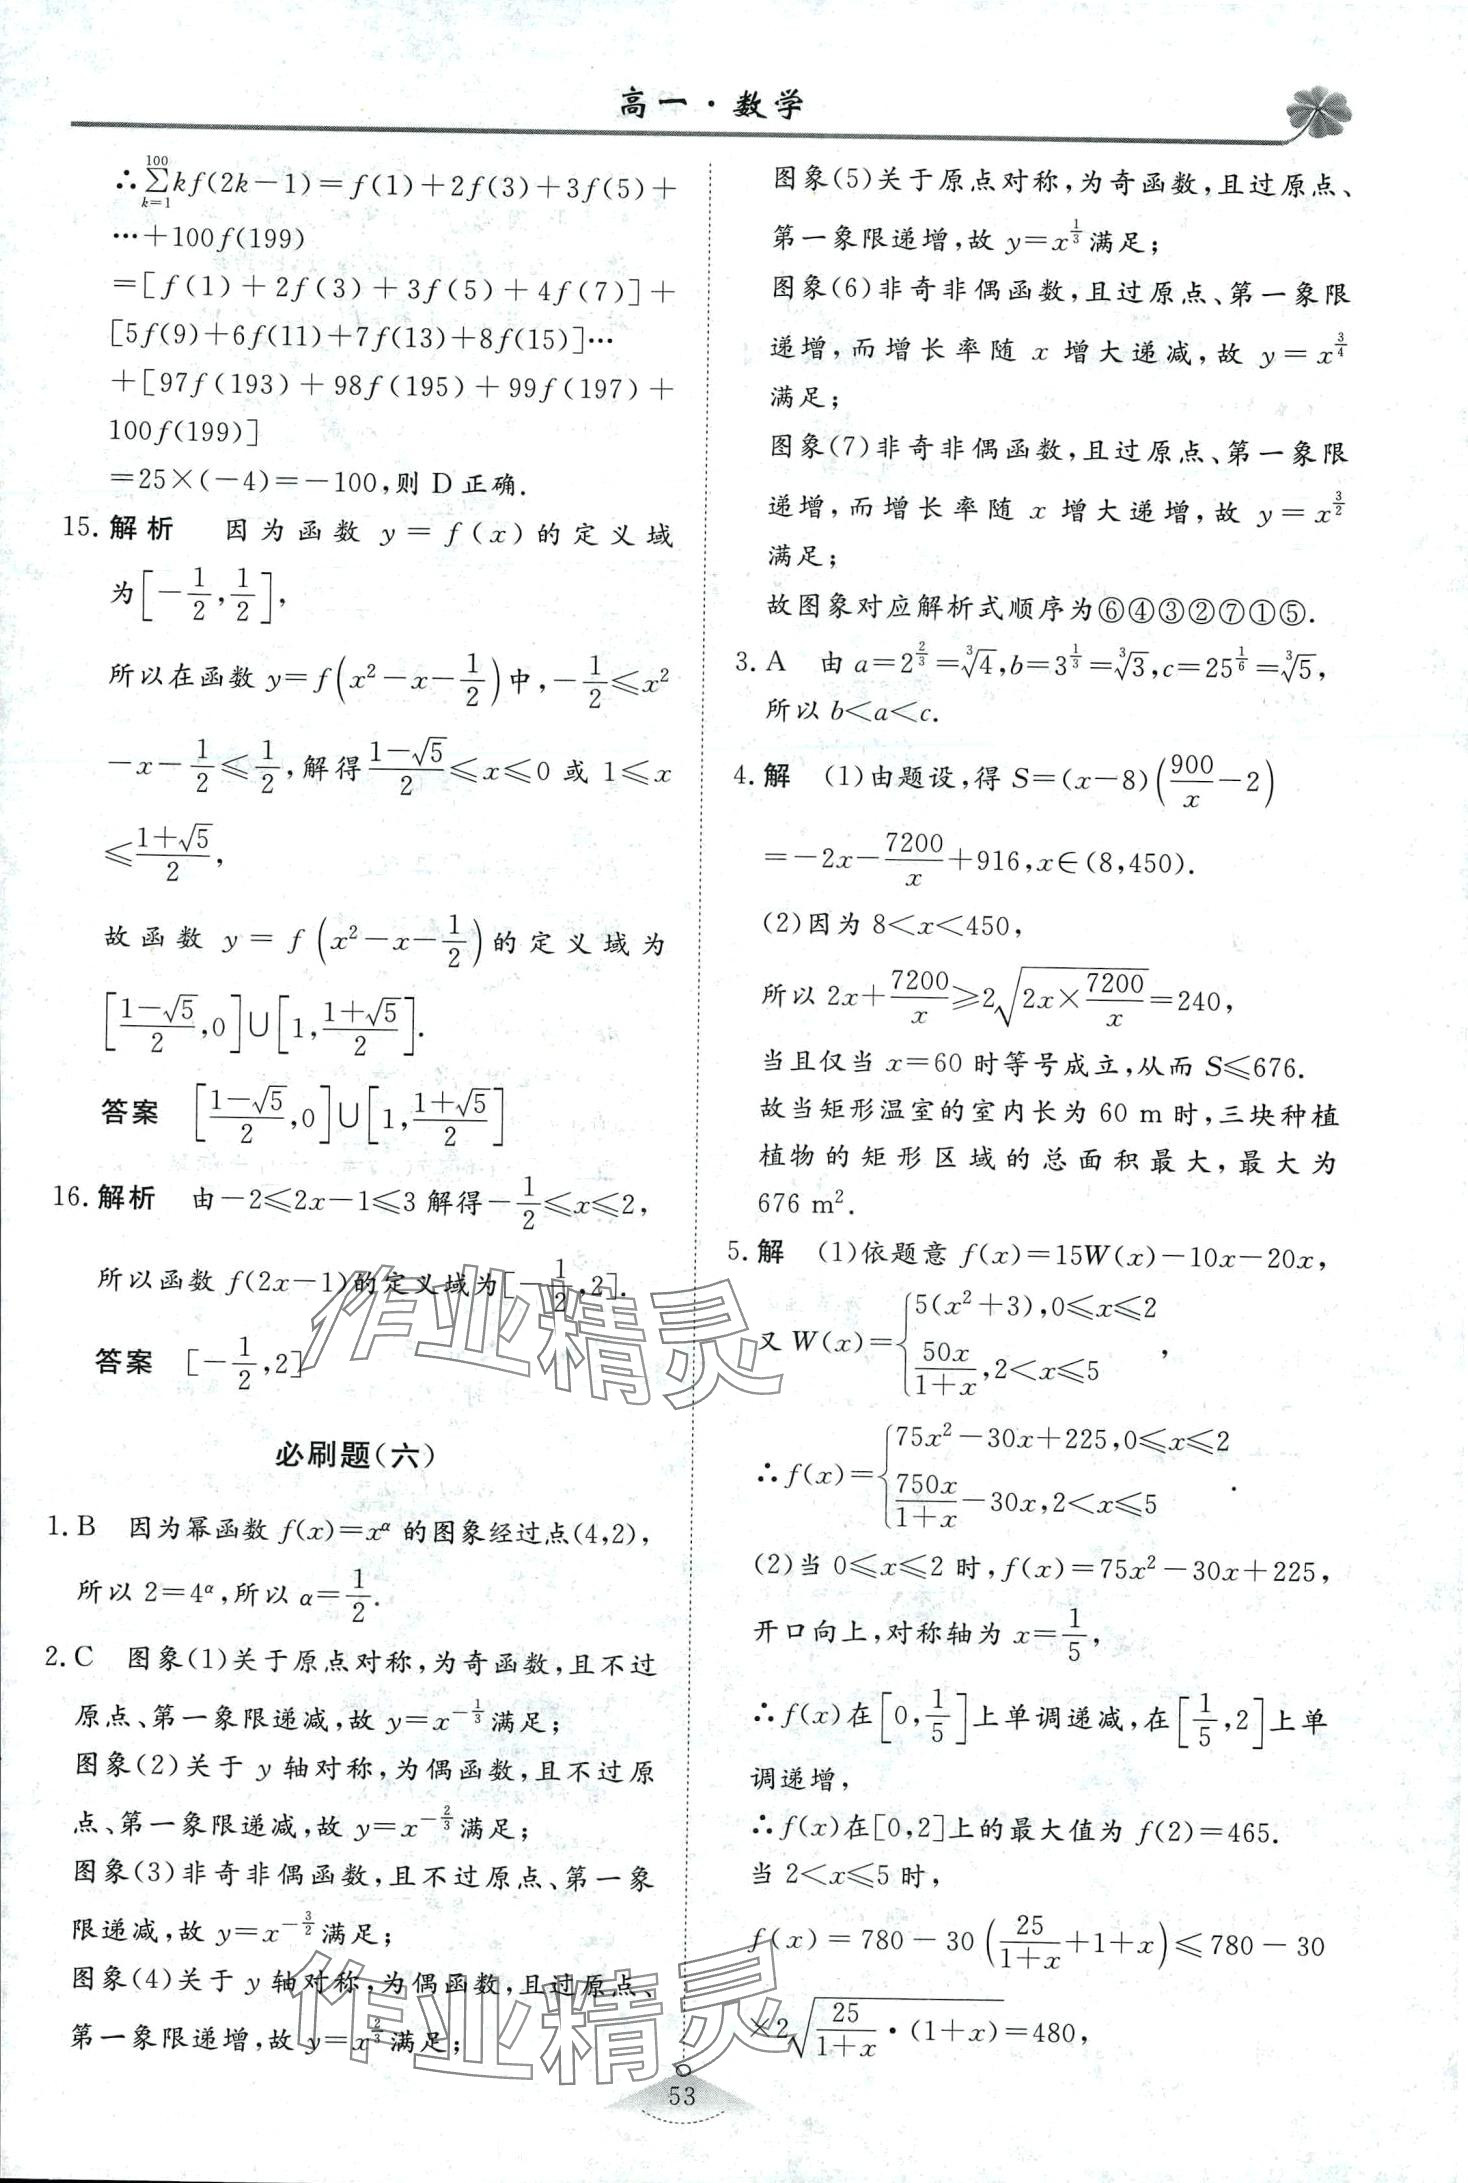 高一·数学
∴∑_{k=1}^{100}kf(2k－1)＝f(1)＋2f(3)＋3f(5)＋
…＋100f(199)
＝[f(1)＋2f(3)＋3f(5)＋4f(7)]＋
[5f(9)＋6f(11)＋7f(13)＋8f(15)]…
＋[97f(193)＋98f(195)＋99f(197)＋
100f(199)]
＝25×(－4)＝－100,则 D 正确.
15. 解析　因为函数 y＝f(x)的定义域
为[－1/2,1/2],
所以在函数 y＝f(x²－x－1/2)中,－1/2≤x²
－x－1/2≤1/2,解得(1－√5)/2≤x≤0 或 1≤x
≤(1＋√5)/2,
故函数 y＝f(x²－x－1/2)的定义域为
[(1－√5)/2,0]∪[1,(1＋√5)/2].
答案　[(1－√5)/2,0]∪[1,(1＋√5)/2]
16. 解析　由－2≤2x－1≤3 解得－1/2≤x≤2,
所以函数 f(2x－1)的定义域为[－1/2,2].
答案　[－1/2,2]
必刷题(六)
1. B　因为幂函数 f(x)＝x^α 的图象经过点(4,2),
所以 2＝4^α,所以 α＝1/2.
2. C　图象(1)关于原点对称,为奇函数,且不过
原点、第一象限递减,故 y＝x^{－1/3}满足;
图象(2)关于 y 轴对称,为偶函数,且不过原
点、第一象限递减,故 y＝x^{－2/3}满足;
图象(3)非奇非偶函数,且不过原点、第一象
限递减,故 y＝x^{－3/2}满足;
图象(4)关于 y 轴对称,为偶函数,且过原点、
第一象限递增,故 y＝x^{2/3}满足;
图象(5)关于原点对称,为奇函数,且过原点、
第一象限递增,故 y＝x^{1/3}满足;
图象(6)非奇非偶函数,且过原点、第一象限
递增,而增长率随 x 增大递减,故 y＝x^{3/4}
满足;
图象(7)非奇非偶函数,且过原点、第一象限
递增,而增长率随 x 增大递增,故 y＝x^{3/2}
满足;
故图象对应解析式顺序为⑥④③②⑦①⑤.
3. A　由 a＝2^{2/3}＝∛4,b＝3^{1/3}＝∛3,c＝25^{1/6}＝∛5,
所以 b＜a＜c.
4. 解　(1)由题设,得 S＝(x－8)(900/x－2)
＝－2x－7200/x＋916,x∈(8,450).
(2)因为 8＜x＜450,
所以 2x＋7200/x≥2√(2x×7200/x)＝240,
当且仅当 x＝60 时等号成立,从而 S≤676.
故当矩形温室的室内长为 60 m 时,三块种植
植物的矩形区域的总面积最大,最大为
676 m².
5. 解　(1)依题意 f(x)＝15W(x)－10x－20x,
又 W(x)＝{5(x²＋3),0≤x≤2
50x/(1＋x),2＜x≤5,
∴f(x)＝{75x²－30x＋225,0≤x≤2
750x/(1＋x)－30x,2＜x≤5.
(2)当 0≤x≤2 时,f(x)＝75x²－30x＋225,
开口向上,对称轴为 x＝1/5,
∴f(x)在[0,1/5]上单调递减,在[1/5,2]上单
调递增,
∴f(x)在[0,2]上的最大值为 f(2)＝465.
当 2＜x≤5 时,
f(x)＝780－30(25/(1＋x)＋1＋x)≤780－30
×2√(25/(1＋x)·(1＋x))＝480,
53
作业精灵
作业精灵